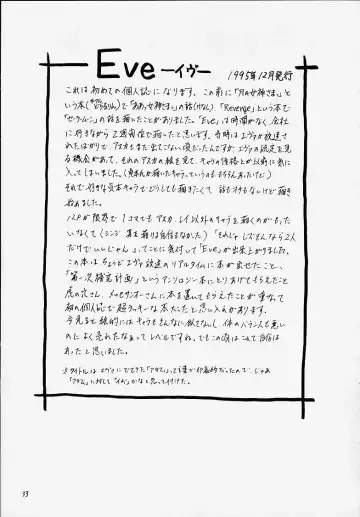 Eve —イヴ—
1995年12月発行
これは初めての個人誌になります。この前に「月の女神さま」と
いう本で「ああっ女神さま」の話(けなし)「Revenge」という本で
「セーラームーン」の話を描いたことがありました。「Eve」は時間がなく会社
に行きながら2週間位で描いたと思います。当時はエヴァが放送さ
れたばかりで、アスカもまだ出てこない頃だったんですが、エヴァの設定を見
る機会があって、それのアスカの絵を見て、キャラの性格とか以前に気に
入ってしまいました。(貞本さんが描いたキャラっていうのももちろんあったけど)
それで好きな貞本キャラでどうしても描きたくて話もオチもないけど描き
始めました。
12Pが限界で1コマでもアスカ、レイ以外のキャラを描くのがもった
いなくて(シンジ 描く自信もなかった)「それじゃレズもんなら2人
だけでいいじゃん」ってことに気付いて「Eve」が出来上がりました。
この本はちょうどエヴァ放送のリアルタイムに本が出せたこと、
「第一次補完計画」というアンソロジー本にとりあげてもらえたこと
虎の穴さん、メッセサンオーさんに本を置いてもらえたことが重なって
初の個人誌で超ラッキーな本だったと思い入れがあります。
今見ると絵的にはキャラもそんなに似てないし、体のバランスも悪い
のによく売れたなぁってレベルですね。でもこの頃はこれで自信は
あったと思いました。
※タイトルはエヴァにでてきた「アダム」って言葉が印象的だったので、じゃあ
「アダム」に対して「イヴ」かなと思って付けた。
33